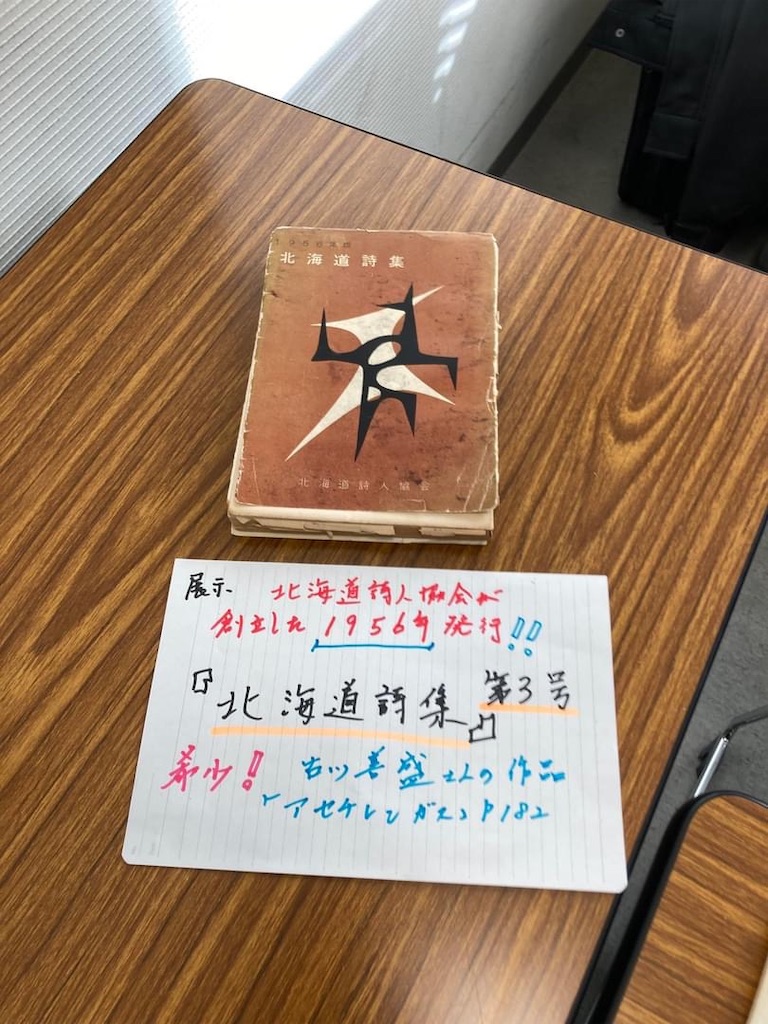 1956年版
北海道詩集
北海道詩人協会
展示 北海道詩人協会が
創立した1956年発行!!
『北海道詩集』第3号
希少! 古川善盛さんの作品
「アセチレンガス」P182